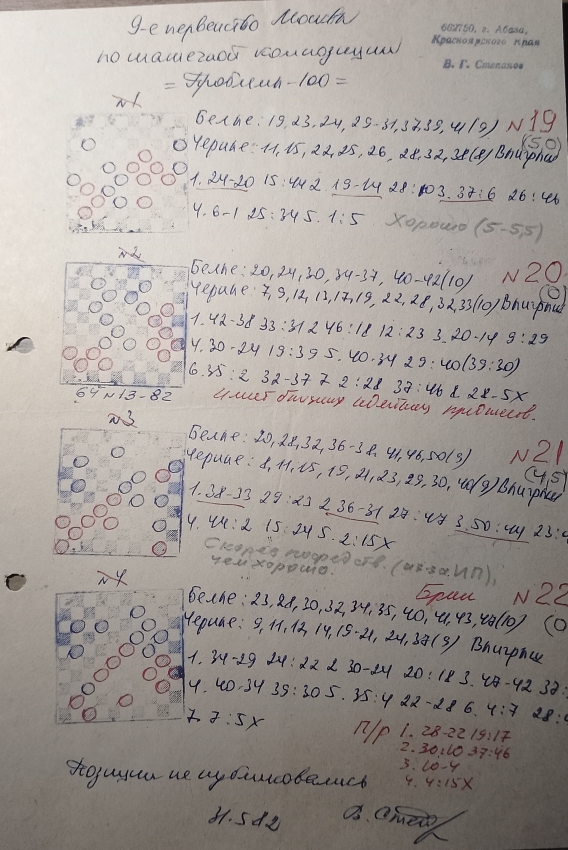 9-е первенство Москвы
662750, г. Абаза,
Красноярского края
В. Г. Степанов
по шашечной композиции
= Проблемы-100 =
№1
Белые: 19,23,24,29-31,37,39,41(9) №19
(5,0)
Черные: 11,15,22,25,26,28,32,38(8) Выигрыш
1. 24-20 15:44 2. 19-14 28:10 3. 37:6 26:46
4. 6-1 25:34 5. 1:5 Хорошо (5-5,5)
№2
Белые: 20,24,30,34-37,40-42(10) №20
(0)
Черные: 7,9,12,13,17,19,22,28,32,33(10) Выигрыш
1. 42-38 33:31 2. 46:18 12:23 3. 20-14 9:29
4. 30-24 19:39 5. 40-34 29:40(39:30)
6. 35:2 32-37 7. 2:28 37:46 8. 28-5X
64 №13-82
Имеет близких идейных предшеств.
№3
Белые: 20,28,32,36-38,41,46,50(9) №21
(4,5)
Черные: 8,11,15,19,21,23,29,30,40(9) Выигрыш
1. 38-33 29:23 2. 36-31 27:47 3. 50:44 23:4
4. 44:2 15:24 5. 2:15X
Скорее посредств. (из-за ИП),
чем хорошо.
№4
Брин №22
Белые: 23,28,30,32,34,35,40,41,43,47(10)
(0
Черные: 9,11,12,14,19-21,24,37(9) Выигрыш
1. 34-29 24:22 2. 30-24 20:18 3. 47-42 37:
4. 40-34 39:30 5. 35:4 22-28 6. 4:7 28:
7. 7:5X
П/р 1. 28-22 19:17
2. 30:10 37:46
3. 10-4
4. 4:15X
Позиции не публиковались
31.5.82
В. Степ